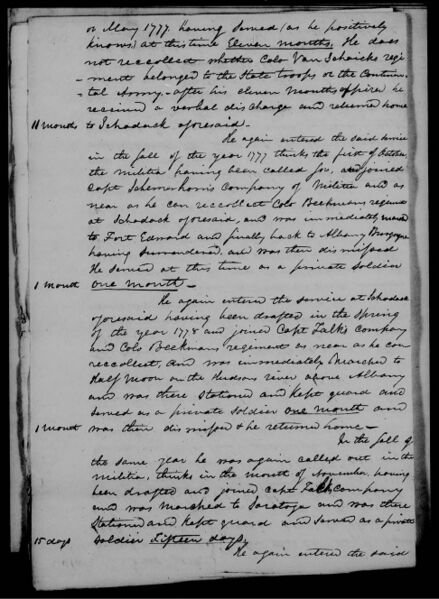 or May 1777. having served (as he positively
knows) at this time Eleven months. He does
not reccollect whether Colo Van Schaicks regi-
ment belonged to the State troops or the Continen-
tal Army. after his eleven months expire he
received a verbal discharge and returned home
11 months to Schodack aforesaid -
He again entered the said service
in the fall of the year 1777 thinks the first of October
the militia having been called for, and joined
Capt Schermerhorns Company of Militia and as
near as he can reccollect Colo Beekmans regiment
at Schodack aforesaid, and was immediately marched
to Fort Edward and finally back to Albany Burgoyne
having Surrendered, and was then dismissed
He served at this time as a private soldier
1 month one month -
He again entered the service at Schodack
aforesaid having been drafted in the Spring
of the year 1778 and joined Capt Company
and Colo Beekmans regiment as near as he can
reccollect, and was immediately marched to
Half Moon on the Hudsons river above Albany
and was there Stationed and Kept guard and
served as a private soldier one month and
1 month was then dismissed & he returned home -
In the fall of
the same year he was again called out in the
Militia, thinks in the month of November, having
been drafted and joined Capt Company
and was marched to Saratoga and was there
Stationed and Kept guard and served as a private
15 days soldier Fifteen days.
He again entered the said